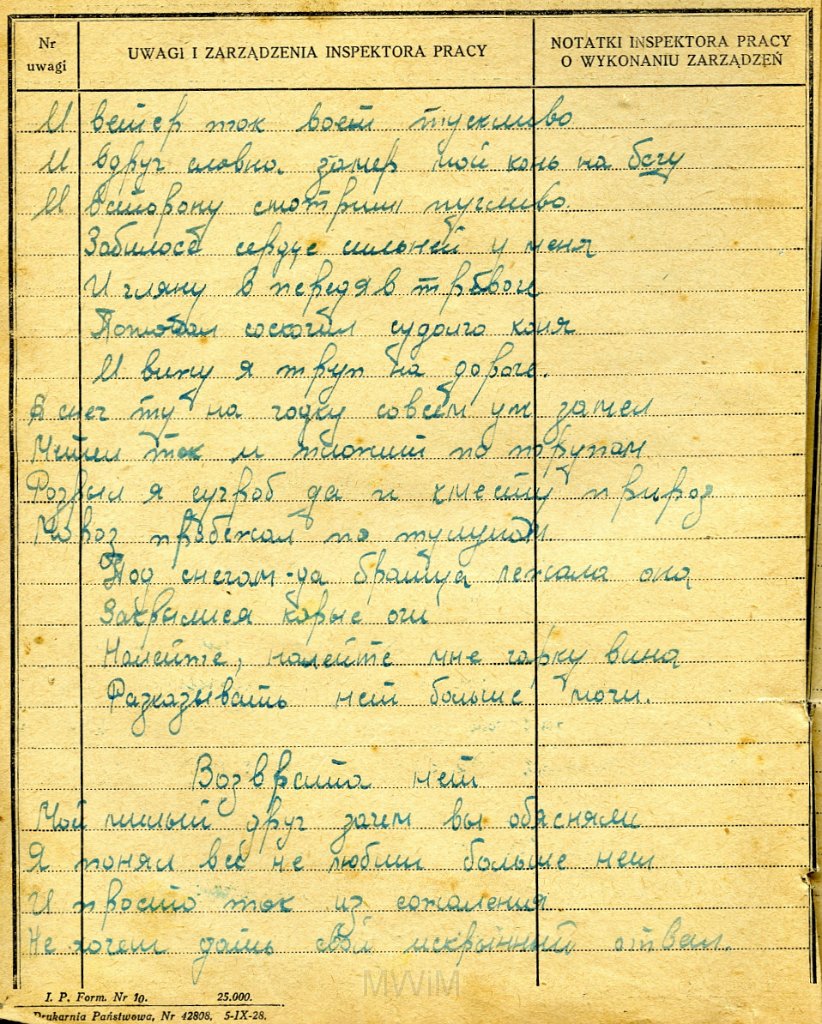 Nr uwagi
UWAGI I ZARZĄDZENIA INSPEKTORA PRACY
NOTATKI INSPEKTORA PRACY O WYKONANIU ZARZĄDZEŃ
И ветер так воет тускливо
И вдруг словно замер мой конь на бегу
И всторону смотрит пугливо
Забилось сердце сильней у меня
И гляну в передя в тревоге
Потом соскочил с конг коня
И вижу я труп на дороге.
А снег ту на годку совсем уж замел
Метел так и по трупам
Розрыл я сугроб да и кместу прироз
Мороз пробежал по тулупам.
Под снегам-да братца лежала она
Закрылися карые очи
Налейте, налейте мне чарку вина
Разказывать нет больше мочи.
Возврата нет
Мой милый друг зачем вы обясняли
Я понял всё не любви больше нет
И просто так из сожаления
Не хочеш дать свой искрынный ответ.
MWiM
I. P. Form. Nr 10. 25.000.
Drukarnia Państwowa, Nr 42808. 5-IX-28.